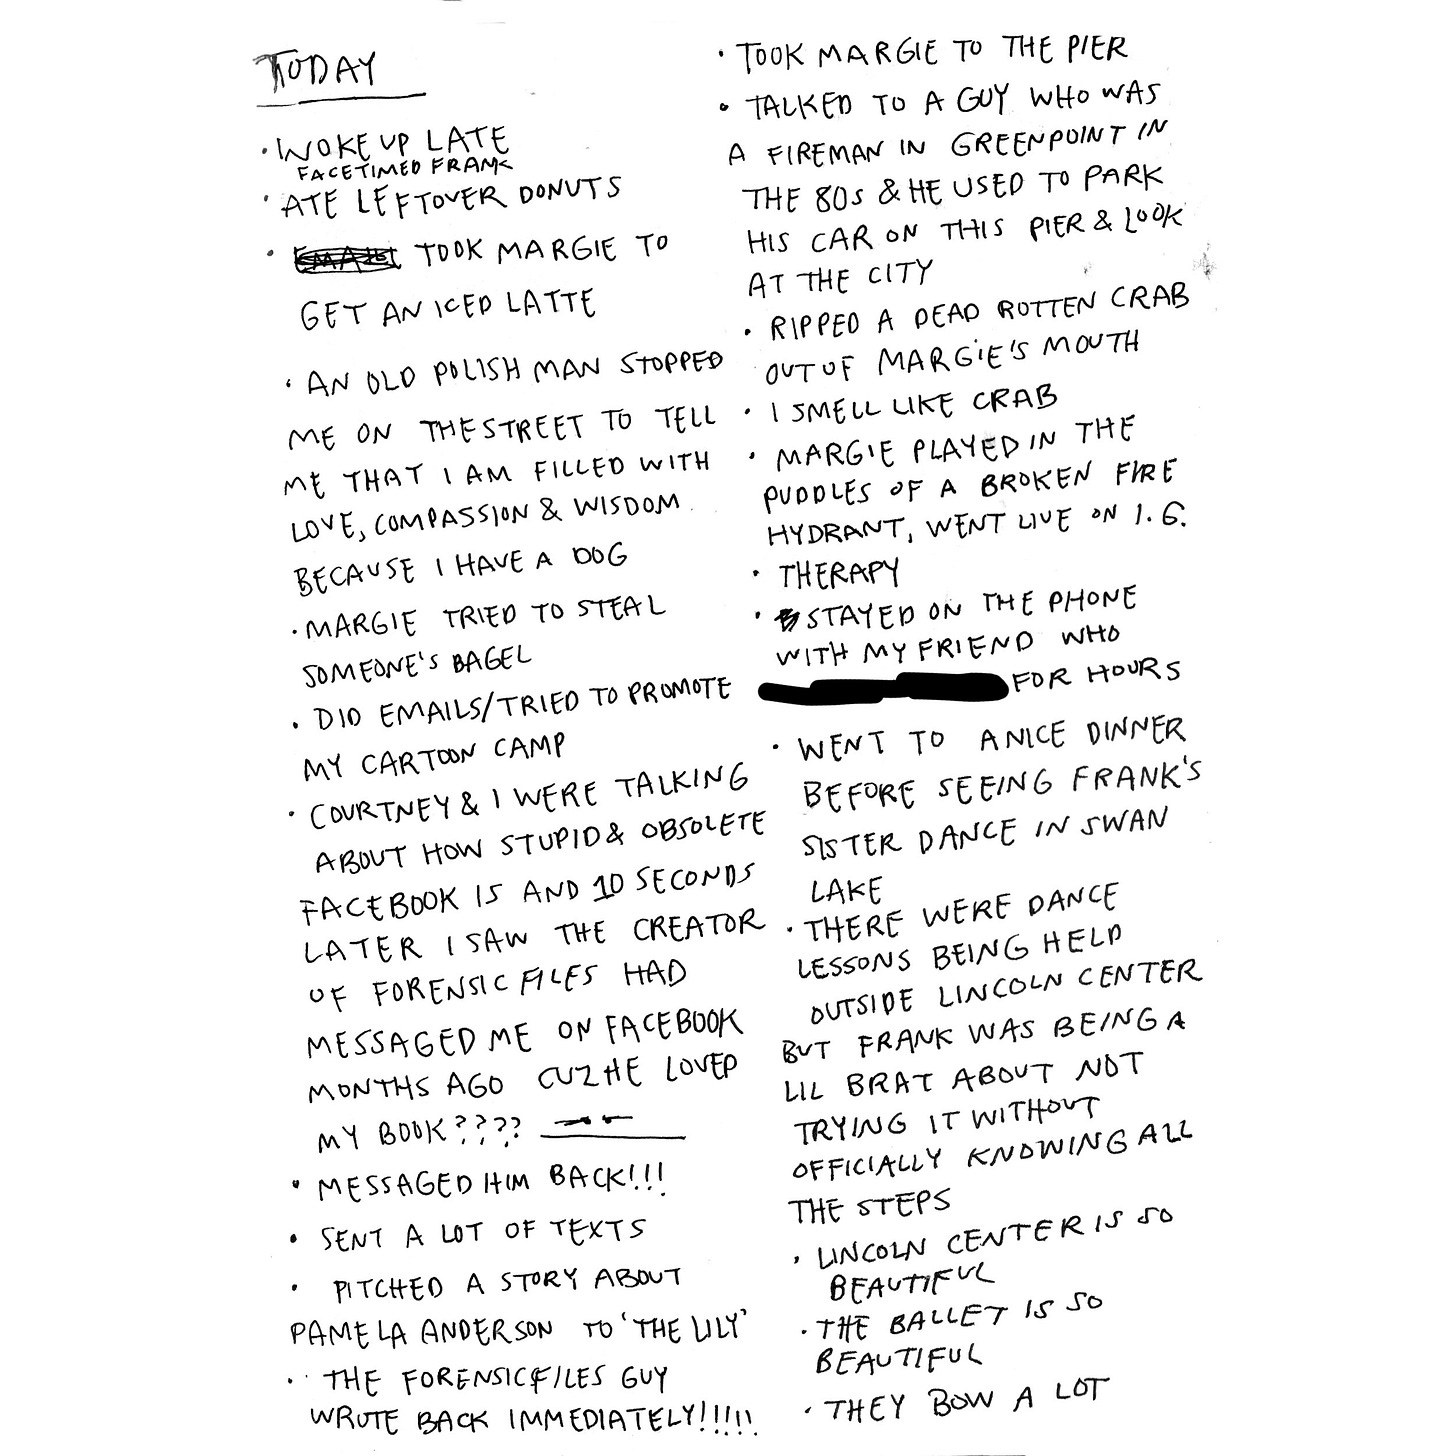 TODAY
• WOKE UP LATE
FACETIMED FRANK
• ATE LEFTOVER DONUTS
• TOOK MARGIE TO
GET AN ICED LATTE
• AN OLD POLISH MAN STOPPED
ME ON THE STREET TO TELL
ME THAT I AM FILLED WITH
LOVE, COMPASSION & WISDOM
BECAUSE I HAVE A DOG
• MARGIE TRIED TO STEAL
SOMEONE'S BAGEL
• DID EMAILS/TRIED TO PROMOTE
MY CARTOON CAMP
• COURTNEY & I WERE TALKING
ABOUT HOW STUPID & OBSOLETE
FACEBOOK IS AND 10 SECONDS
LATER I SAW THE CREATOR
OF FORENSIC FILES HAD
MESSAGED ME ON FACEBOOK
MONTHS AGO CUZ HE LOVED
MY BOOK????
• MESSAGED HIM BACK!!!
• SENT A LOT OF TEXTS
• PITCHED A STORY ABOUT
PAMELA ANDERSON TO 'THE LILY'
• THE FORENSIC FILES GUY
WROTE BACK IMMEDIATELY!!!!!!
• TOOK MARGIE TO THE PIER
• TALKED TO A GUY WHO WAS
A FIREMAN IN GREENPOINT IN
THE 80s & HE USED TO PARK
HIS CAR ON THIS PIER & LOOK
AT THE CITY
• RIPPED A DEAD ROTTEN CRAB
OUT OF MARGIE'S MOUTH
• I SMELL LIKE CRAB
• MARGIE PLAYED IN THE
PUDDLES OF A BROKEN FIRE
HYDRANT, WENT LIVE ON I.G.
• THERAPY
• STAYED ON THE PHONE
WITH MY FRIEND WHO
FOR HOURS
• WENT TO A NICE DINNER
BEFORE SEEING FRANK'S
SISTER DANCE IN SWAN
LAKE
• THERE WERE DANCE
LESSONS BEING HELD
OUTSIDE LINCOLN CENTER
BUT FRANK WAS BEING A
LIL BRAT ABOUT NOT
TRYING IT WITHOUT
OFFICIALLY KNOWING ALL
THE STEPS
• LINCOLN CENTER IS SO
BEAUTIFUL
• THE BALLET IS SO
BEAUTIFUL
• THEY BOW A LOT